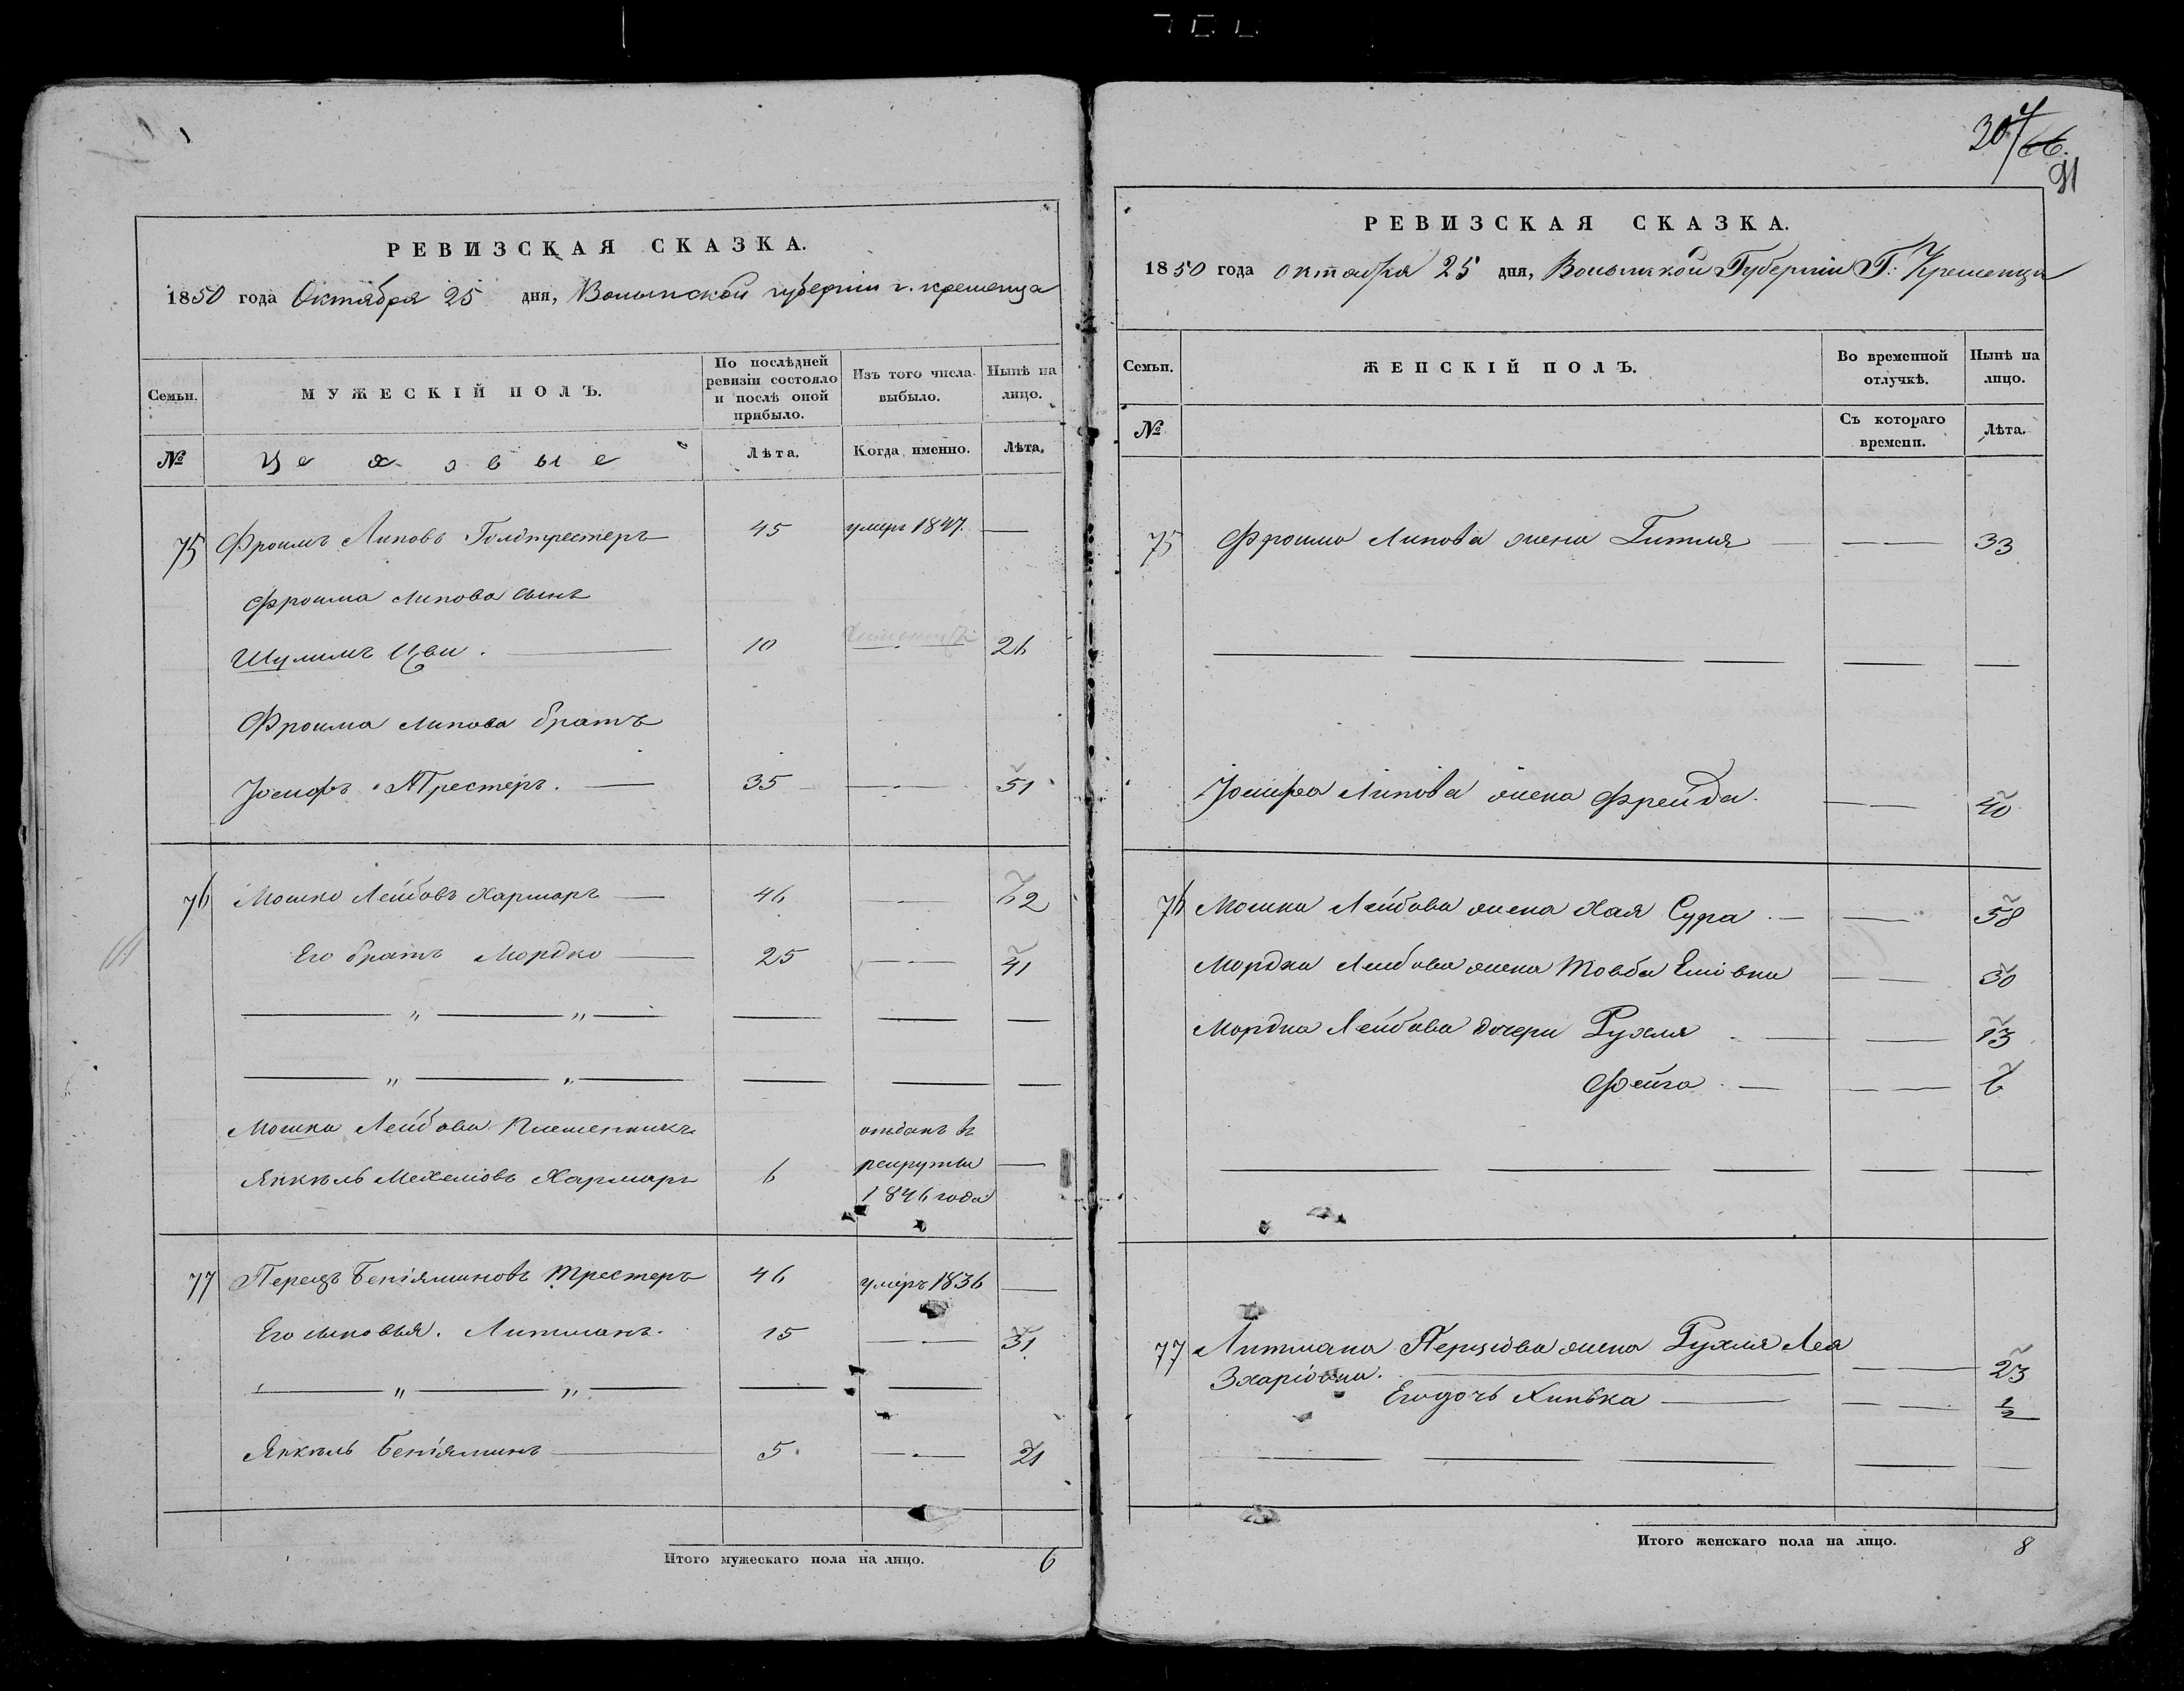 РЕВИЗСКАЯ СКАЗКА.
1850 года Октября 25 дня, Волынской губерніи г. кременца
Семьи.
МУЖЕСКІЙ ПОЛЪ.
По послѣдней ревизіи состояло и послѣ оной прибыло.
Изъ того числа выбыло.
Нынѣ на лицо.
№
Цеховые
Лѣта.
Когда именно.
Лѣта.
75 Фроимъ Липовъ Голдтрестеръ 45 умеръ 1847. —
Фроима Липова сынъ
Шулимъ Цви. — 10 — 26
Фроима Липова братъ
Іосифъ Трестеръ. — 35 — 51
76 Мошко Лейбовъ Харморъ — 46 — 62
Его братъ Мордко — 25 — 41
— „ — „ —
— „ — „ —
Мошка Лейбова племенникъ
отданъ въ
Янкель Мехелювъ Харморъ 6 рекруты —
1846 года
77 Перецъ Беніяминовъ Трестеръ 46 умеръ 1836 —
Его сыновья. Литманъ. 15 — 31
— „ — „ —
Янкель Беніяминъ — 5 — 21
Итого мужескаго пола на лицо. 6
307
66.
91
РЕВИЗСКАЯ СКАЗКА.
1850 года октября 25 дня, Волынской Губерніи Г. Кременца
Семьи.
ЖЕНСКІЙ ПОЛЪ.
Во временной отлучкѣ.
Нынѣ на лицо.
№
Съ котораго времени.
Лѣта.
75 Фроима Липова жена Гитля — 33
Іосифа Липова жена Фрейда. — 40
76 Мошка Лейбова жена Хая Сура. — 58
Мордка Лейбова жена Товба Еліовна — 30
Мордка Лейбова дочери Рухля — 13
Фейга — 6
77 Литмана Перціова жена Рухля Лея
Зхаріовна. — 23
Его дочь Хинька — 1/2
Итого женскаго пола на лицо. 8